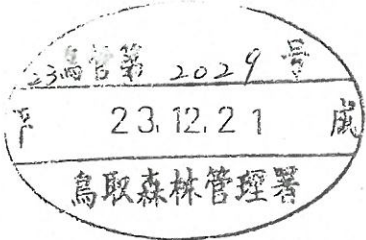 23鳥管第 2029 号
23.12.21
鳥取森林管理署